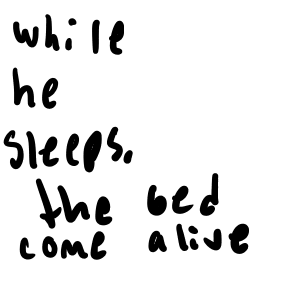 while
he
sleeps.
the bed
come alive